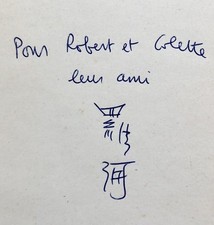 Pour Robert et Colette
leur ami